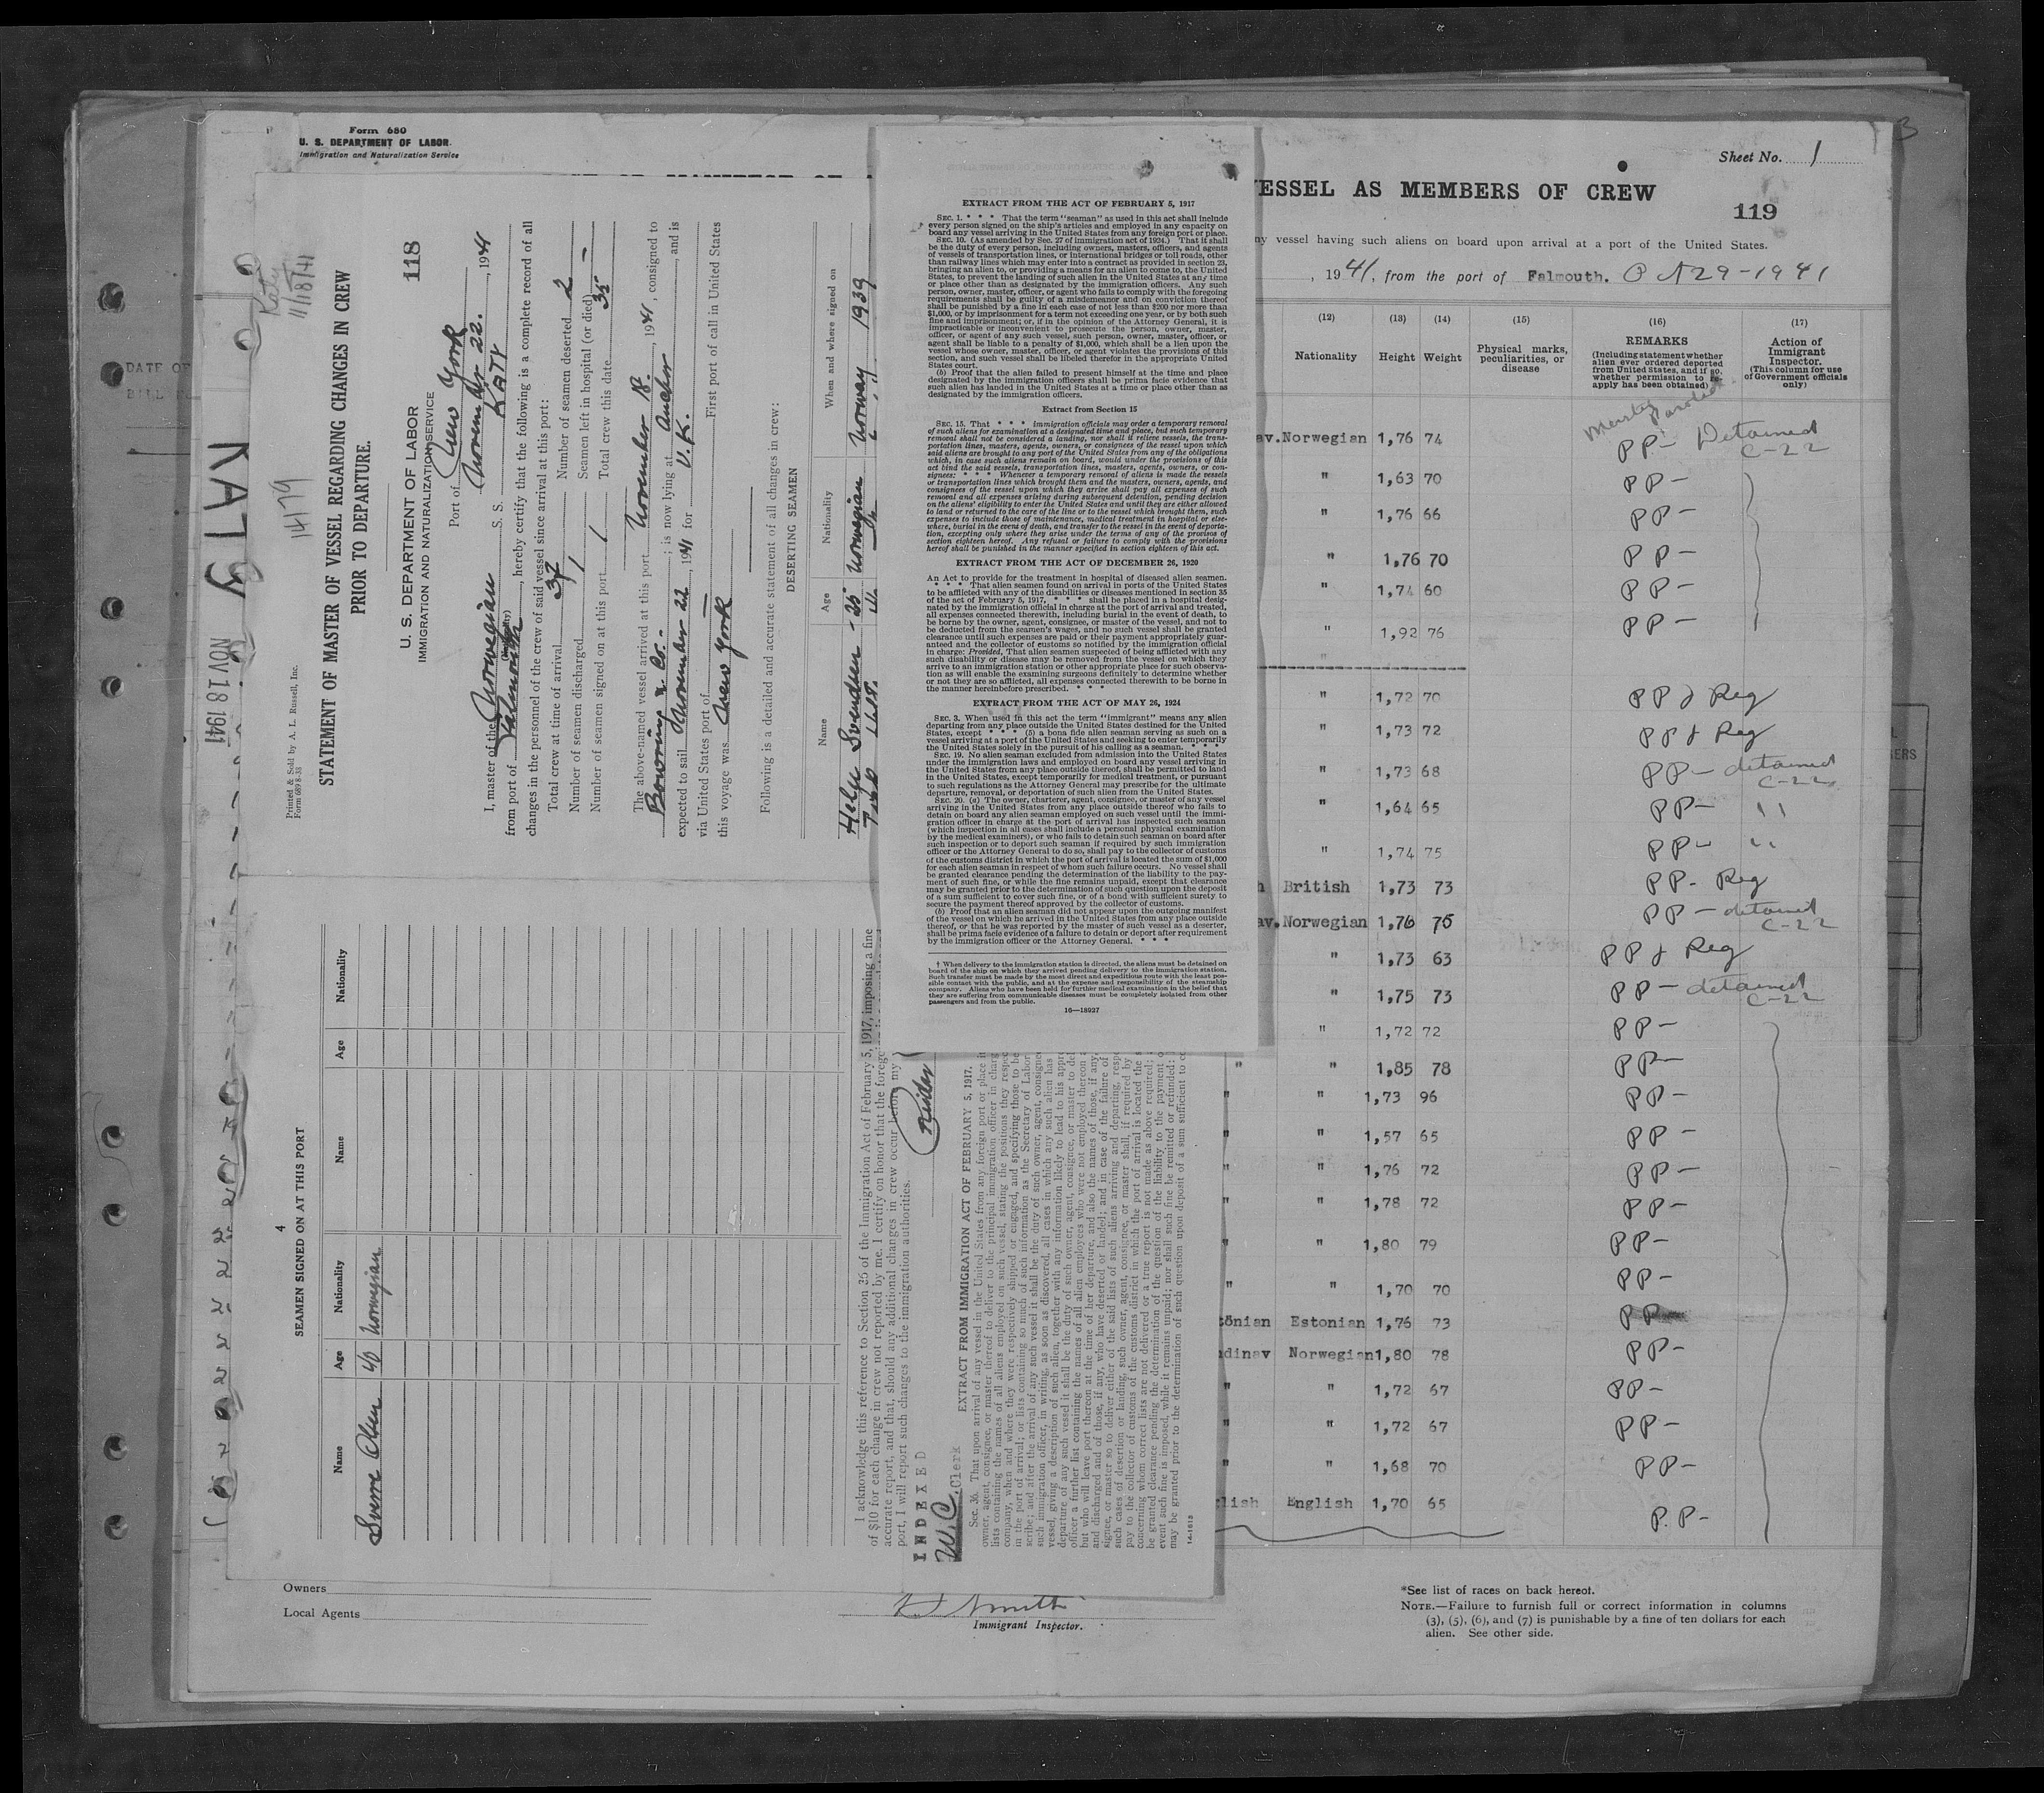 Form 680
U. S. DEPARTMENT OF LABOR
Immigration and Naturalization Service
Sheet No. 1
ESSEL AS MEMBERS OF CREW
119
ny vessel having such aliens on board upon arrival at a port of the United States.
, 1941, from the port of Falmouth. Oct 29-1941
(12) (13) (14) (15) (16) (17)
Nationality Height Weight Physical marks, peculiarities, or disease
REMARKS
(Including statement whether
alien ever ordered deported
from United States, and if so,
whether permission to re-
apply has been obtained)
Action of
Immigrant
Inspector.
(This column for use
of Government officials
only)
av. Norwegian 1,76 74 PP- Detained
C-22
" 1,63 70 PP-
" 1,76 66 PP-
" 1,76 70 PP-
" 1,74 60 PP-
" 1,92 76 PP-
"
" 1,72 70 PP & Reg
" 1,73 72 PP & Reg
" 1,73 68 PP- detained
C-22
" 1,64 65 PP- "
" 1,74 75 PP- "
h British 1,73 73 PP- Reg
av. Norwegian 1,76 75 PP- detained
C-22
" 1,73 63 PP & Reg
" 1,75 73 PP- detained
C-22
" 1,72 72 PP-
" " 1,85 78 PP-
" " 1,73 96 PP-
" " 1,57 65 PP-
" " 1,76 72 PP-
" " 1,78 72 PP-
" 1,80 79 PP-
" " 1,70 70 PP-
tönian Estonian 1,76 73 PP
dinav Norwegian 1,80 78 PP-
" " 1,72 67 PP-
" " 1,72 67 PP-
" " 1,68 70 PP-
lish English 1,70 65 P.P-
Owners
Local Agents
Immigrant Inspector.
*See list of races on back hereof.
NOTE.—Failure to furnish full or correct information in columns
(3), (5), (6), and (7) is punishable by a fine of ten dollars for each
alien. See other side.
EXTRACT FROM THE ACT OF FEBRUARY 5, 1917
SEC. 1. * * * That the term "seaman" as used in this act shall include
every person signed on the ship's articles and employed in any capacity on
board any vessel arriving in the United States from any foreign port or place.
SEC. 10. (As amended by Sec. 27 of immigration act of 1924.) That it shall
be the duty of every person, including owners, masters, officers, and agents
of vessels of transportation lines, or international bridges or toll roads, other
than railway lines which may enter into a contract as provided in section 23,
bringing an alien to, or providing a means for an alien to come to, the United
States, to prevent the landing of such alien in the United States at any time
or place other than as designated by the immigration officers. Any such
person, owner, master, officer, or agent who fails to comply with the foregoing
requirements shall be guilty of a misdemeanor and on conviction thereof
shall be punished by a fine in each case of not less than $200 nor more than
$1,000, or by imprisonment for a term not exceeding one year, or by both such
fine and imprisonment; or, if in the opinion of the Attorney General, it is
impracticable or inconvenient to prosecute the person, owner, master,
officer, or agent of any such vessel, such person, owner, master, officer, or
agent shall be liable to a penalty of $1,000, which shall be a lien upon the
vessel whose owner, master, officer, or agent violates the provisions of this
section, and such vessel shall be libeled therefor in the appropriate United
States court.
(b) Proof that the alien failed to present himself at the time and place
designated by the immigration officers shall be prima facie evidence that
such alien has landed in the United States at a time or place other than as
designated by the immigration officers.
Extract from Section 15
SEC. 15. That * * * immigration officials may order a temporary removal
of such aliens for examination at a designated time and place, but such temporary
removal shall not be considered a landing, nor shall it relieve vessels, the trans-
portation lines, masters, agents, owners, or consignees of the vessel upon which
said aliens are brought to any port of the United States from any of the obligations
which, in case such aliens remain on board, would under the provisions of this
act bind the said vessels, transportation lines, masters, agents, owners, or con-
signees: * * * Whenever a temporary removal of aliens is made the vessels
or transportation lines which brought them and the masters, owners, agents, and
consignees of the vessel upon which they arrive shall pay all expenses of such
removal and all expenses arising during subsequent detention, pending decision
on the aliens' eligibility to enter the United States and until they are either allowed
to land or returned to the care of the line or to the vessel which brought them, such
expenses to include those of maintenance, medical treatment in hospital or else-
where, burial in the event of death, and transfer to the vessel in the event of deporta-
tion, excepting only where they arise under the terms of any of the provisos of
section eighteen hereof. Any refusal or failure to comply with the provisions
hereof shall be punished in the manner specified in section eighteen of this act.
EXTRACT FROM THE ACT OF DECEMBER 26, 1920
An Act to provide for the treatment in hospital of diseased alien seamen.
* * * * That alien seamen found on arrival in ports of the United States
to be afflicted with any of the disabilities or diseases mentioned in section 35
of the act of February 5, 1917, * * * shall be placed in a hospital desig-
nated by the immigration official in charge at the port of arrival and treated,
all expenses connected therewith, including burial in the event of death, to
be borne by the owner, agent, consignee, or master of the vessel, and not to
be deducted from the seamen's wages, and no such vessel shall be granted
clearance until such expenses are paid or their payment appropriately guar-
anteed and the collector of customs so notified by the immigration official
in charge: Provided, That alien seamen suspected of being afflicted with any
such disability or disease may be removed from the vessel on which they
arrive to an immigration station or other appropriate place for such observa-
tion as will enable the examining surgeons definitely to determine whether
or not they are so afflicted, all expenses connected therewith to be borne in
the manner hereinbefore prescribed. * * *
EXTRACT FROM THE ACT OF MAY 26, 1924
SEC. 3. When used in this act the term "immigrant" means any alien
departing from any place outside the United States destined for the United
States, except * * * (5) a bona fide alien seaman serving as such on a
vessel arriving at a port of the United States and seeking to enter temporarily
the United States solely in the pursuit of his calling as a seaman. * * *
SEC. 19. No alien seaman excluded from admission into the United States
under the immigration laws and employed on board any vessel arriving in
the United States from any place outside thereof, shall be permitted to land
in the United States, except temporarily for medical treatment, or pursuant
to such regulations as the Attorney General may prescribe for the ultimate
departure, removal, or deportation of such alien from the United States.
SEC. 20. (a) The owner, charterer, agent, consignee, or master of any vessel
arriving in the United States from any place outside thereof who fails to
detain on board any alien seaman employed on such vessel until the immi-
gration officer in charge at the port of arrival has inspected such seaman
(which inspection in all cases shall include a personal physical examination
by the medical examiners), or who fails to detain such seaman on board after
such inspection or to deport such seaman if required by such immigration
officer or the Attorney General to do so, shall pay to the collector of customs
of the customs district in which the port of arrival is located the sum of $1,000
for each alien seaman in respect of whom such failure occurs. No vessel shall
be granted clearance pending the determination of the liability to the pay-
ment of such fine, or while the fine remains unpaid, except that clearance
may be granted prior to the determination of such question upon the deposit
of a sum sufficient to cover such fine, or of a bond with sufficient surety to
secure the payment thereof approved by the collector of customs.
(b) Proof that an alien seaman did not appear upon the outgoing manifest
of the vessel on which he arrived in the United States from any place outside
thereof, or that he was reported by the master of such vessel as a deserter,
shall be prima facie evidence of a failure to detain or deport after requirement
by the immigration officer or the Attorney General. * * *
† When delivery to the immigration station is directed, the aliens must be detained on
board of the ship on which they arrived pending delivery to the immigration station.
Such transfer must be made by the most direct and expeditious route with the least pos-
sible contact with the public, and at the expense and responsibility of the steamship
company. Aliens who have been held for further medical examination in the belief that
they are suffering from communicable diseases must be completely isolated from other
passengers and from the public.
16—18927
KATY
NOV 18 1941
14179
Katy
11/18/41
Printed & Sold by A. L. Russell, Inc.
Form 689 8-33
STATEMENT OF MASTER OF VESSEL REGARDING CHANGES IN CREW
PRIOR TO DEPARTURE.
U. S. DEPARTMENT OF LABOR 118
IMMIGRATION AND NATURALIZATION SERVICE
Port of New York
November 22., 1941
I, master of the Norwegian S. S. KATY
(Nationality)
from port of Falmouth, hereby certify that the following is a complete record of all
changes in the personnel of the crew of said vessel since arrival at this port:
Total crew at time of arrival 37 Number of seamen deserted 2
Number of seamen discharged 1 Seamen left in hospital (or died) -
Number of seamen signed on at this port 1 Total crew this date 35
The above-named vessel arrived at this port November 18., 1941, consigned to
Bowring & Co. - ; is now lying at Anchor, and is
expected to sail November 22, 1941 for U.K.
via United States port of — First port of call in United States
this voyage was New York
Following is a detailed and accurate statement of all changes in crew:
DESERTING SEAMEN
Name Age Nationality When and where signed on
Helge Svendsen - 25 Norwegian Norway 1939
4
SEAMEN SIGNED ON AT THIS PORT
Name Age Nationality Name Age Nationality
Sverre Olsen 40 Norwegian
I acknowledge this reference to Section 35 of the Immigration Act of February 5, 1917, imposing a fine
of $10 for each change in crew not reported by me. I certify on honor that the forego
accurate report, and that, should any additional changes in crew occur before my
port, I will report such changes to the immigration authorities.
INDEXED
W.C. Clerk
EXTRACT FROM IMMIGRATION ACT OF FEBRUARY 5, 1917.
Sec. 36. That upon arrival of any vessel in the United States from any foreign port or place it
owner, agent, consignee, or master thereof to deliver to the principal immigration officer in charg
lists containing the names of all aliens employed on such vessel, stating the positions they respec
company, when and where they were respectively shipped or engaged, and specifying those to be
in the port of arrival; or lists containing so much of such information as the Secretary of Labor
scribe; and after the arrival of any such vessel it shall be the duty of such owner, agent, consigne
such immigration officer, in writing, as soon as discovered, all cases in which any such alien has
vessel, giving a description of such alien, together with any information likely to lead to his appre
departure of any such vessel it shall be the duty of such owner, agent, consignee, or master to del
officer a further list containing the names of all alien employees who were not employed thereon a
but who will leave port thereon at the time of her departure, and also the names of those, if any,
and discharged and of those, if any, who have deserted or landed; and in case of the failure of
signee, or master so to deliver either of the said lists of such aliens arriving and departing, resp
such cases of desertion or landing, such owner, agent, consignee, or master shall, if required by
pay to the collector of customs of the customs district in which the port of arrival is located the s
concerning whom correct lists are not delivered or a true report is not made as above required;
be granted clearance pending the determination of the question of the liability to the payment o
event such fine is imposed, while it remains unpaid; nor shall such fine be remitted or refunded:
may be granted prior to the determination of such question upon deposit of a sum sufficient to c
14-1618